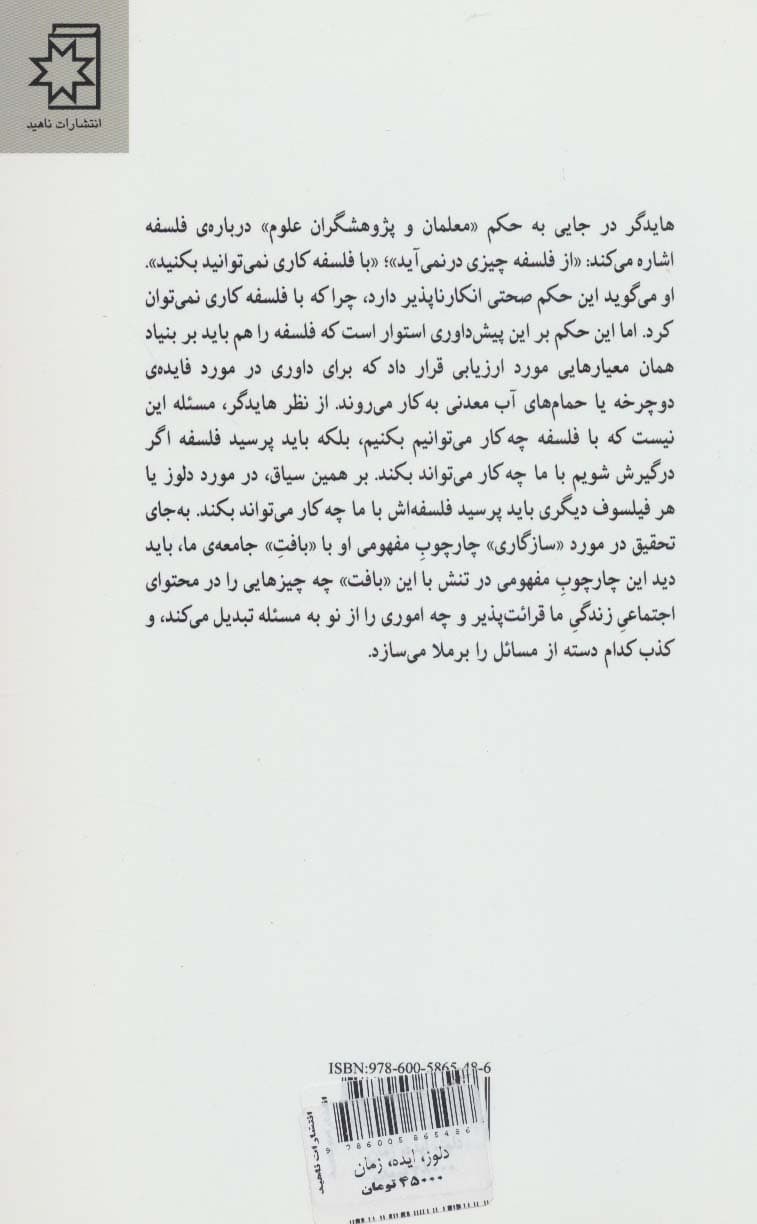 انتشارات ناهید
هایدگر در جایی به حکم «معلمان و پژوهشگران علوم» درباره‌ی فلسفه
اشاره می‌کند: «از فلسفه چیزی درنمی‌آید»؛ «با فلسفه کاری نمی‌توانید بکنید».
او می‌گوید این حکم صحتی انکارناپذیر دارد، چرا که با فلسفه کاری نمی‌توان
کرد. اما این حکم بر این پیش‌داوری استوار است که فلسفه را هم باید بر بنیاد
همان معیارهایی مورد ارزیابی قرار داد که برای داوری در مورد فایده‌ی
دوچرخه یا حمام‌های آب معدنی به کار می‌روند. از نظر هایدگر، مسئله این
نیست که با فلسفه چه کار می‌توانیم بکنیم، بلکه باید پرسید فلسفه اگر
درگیرش شویم با ما چه کار می‌تواند بکند. بر همین سیاق، در مورد دلوز یا
هر فیلسوف دیگری باید پرسید فلسفه‌اش با ما چه کار می‌تواند بکند. به‌جای
تحقیق در مورد «سازگاری» چارچوبِ مفهومی او با «بافتِ» جامعه‌ی ما، باید
دید این چارچوبِ مفهومی در تنش با این «بافت» چه چیزهایی را در محتوای
اجتماعیِ زندگیِ ما قرائت‌پذیر و چه اموری را از نو به مسئله تبدیل می‌کند، و
کذب کدام دسته از مسائل را برملا می‌سازد.
ISBN:978-600-5865-48-6
انتشارات ناهید
9 786005 865486
دلوز، ایده، زمان
۴۵۰۰۰ تومان